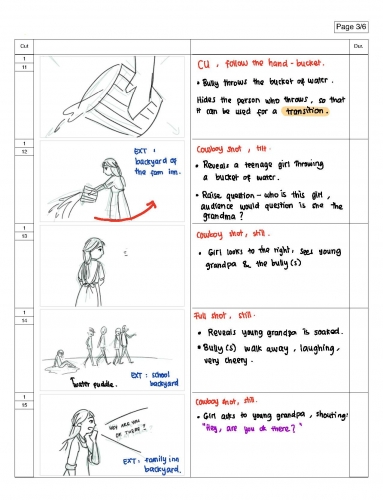 Page 3/6
Cut
Dur.
1
11
CU , follow the hand - bucket.
• Bully throws the bucket of water.
Hides the person who throws, so that
it can be used for a transition.
1
12
EXT :
backyard of
the fam inn.
Cowboy shot , tilt.
• Reveals a teenage girl throwing
a bucket of water.
• Raise question - who is this girl ,
audience would question is she the
grandma ?
1
13
Cowboy shot, still.
• Girl looks to the right, sees young
grandpa & the bully(s)
1
14
water puddle.
EXT : school
backyard
Full shot , still.
• Reveals young grandpa is soaked.
• Bully(s) walk away , laughing ,
very cheery.
1
15
HEY ARE YOU
OK THERE ?
EXT : family inn
backyard.
Cowboy shot, still.
• Girl asks to young grandpa , shouting:
"Hey, are you ok there ? "